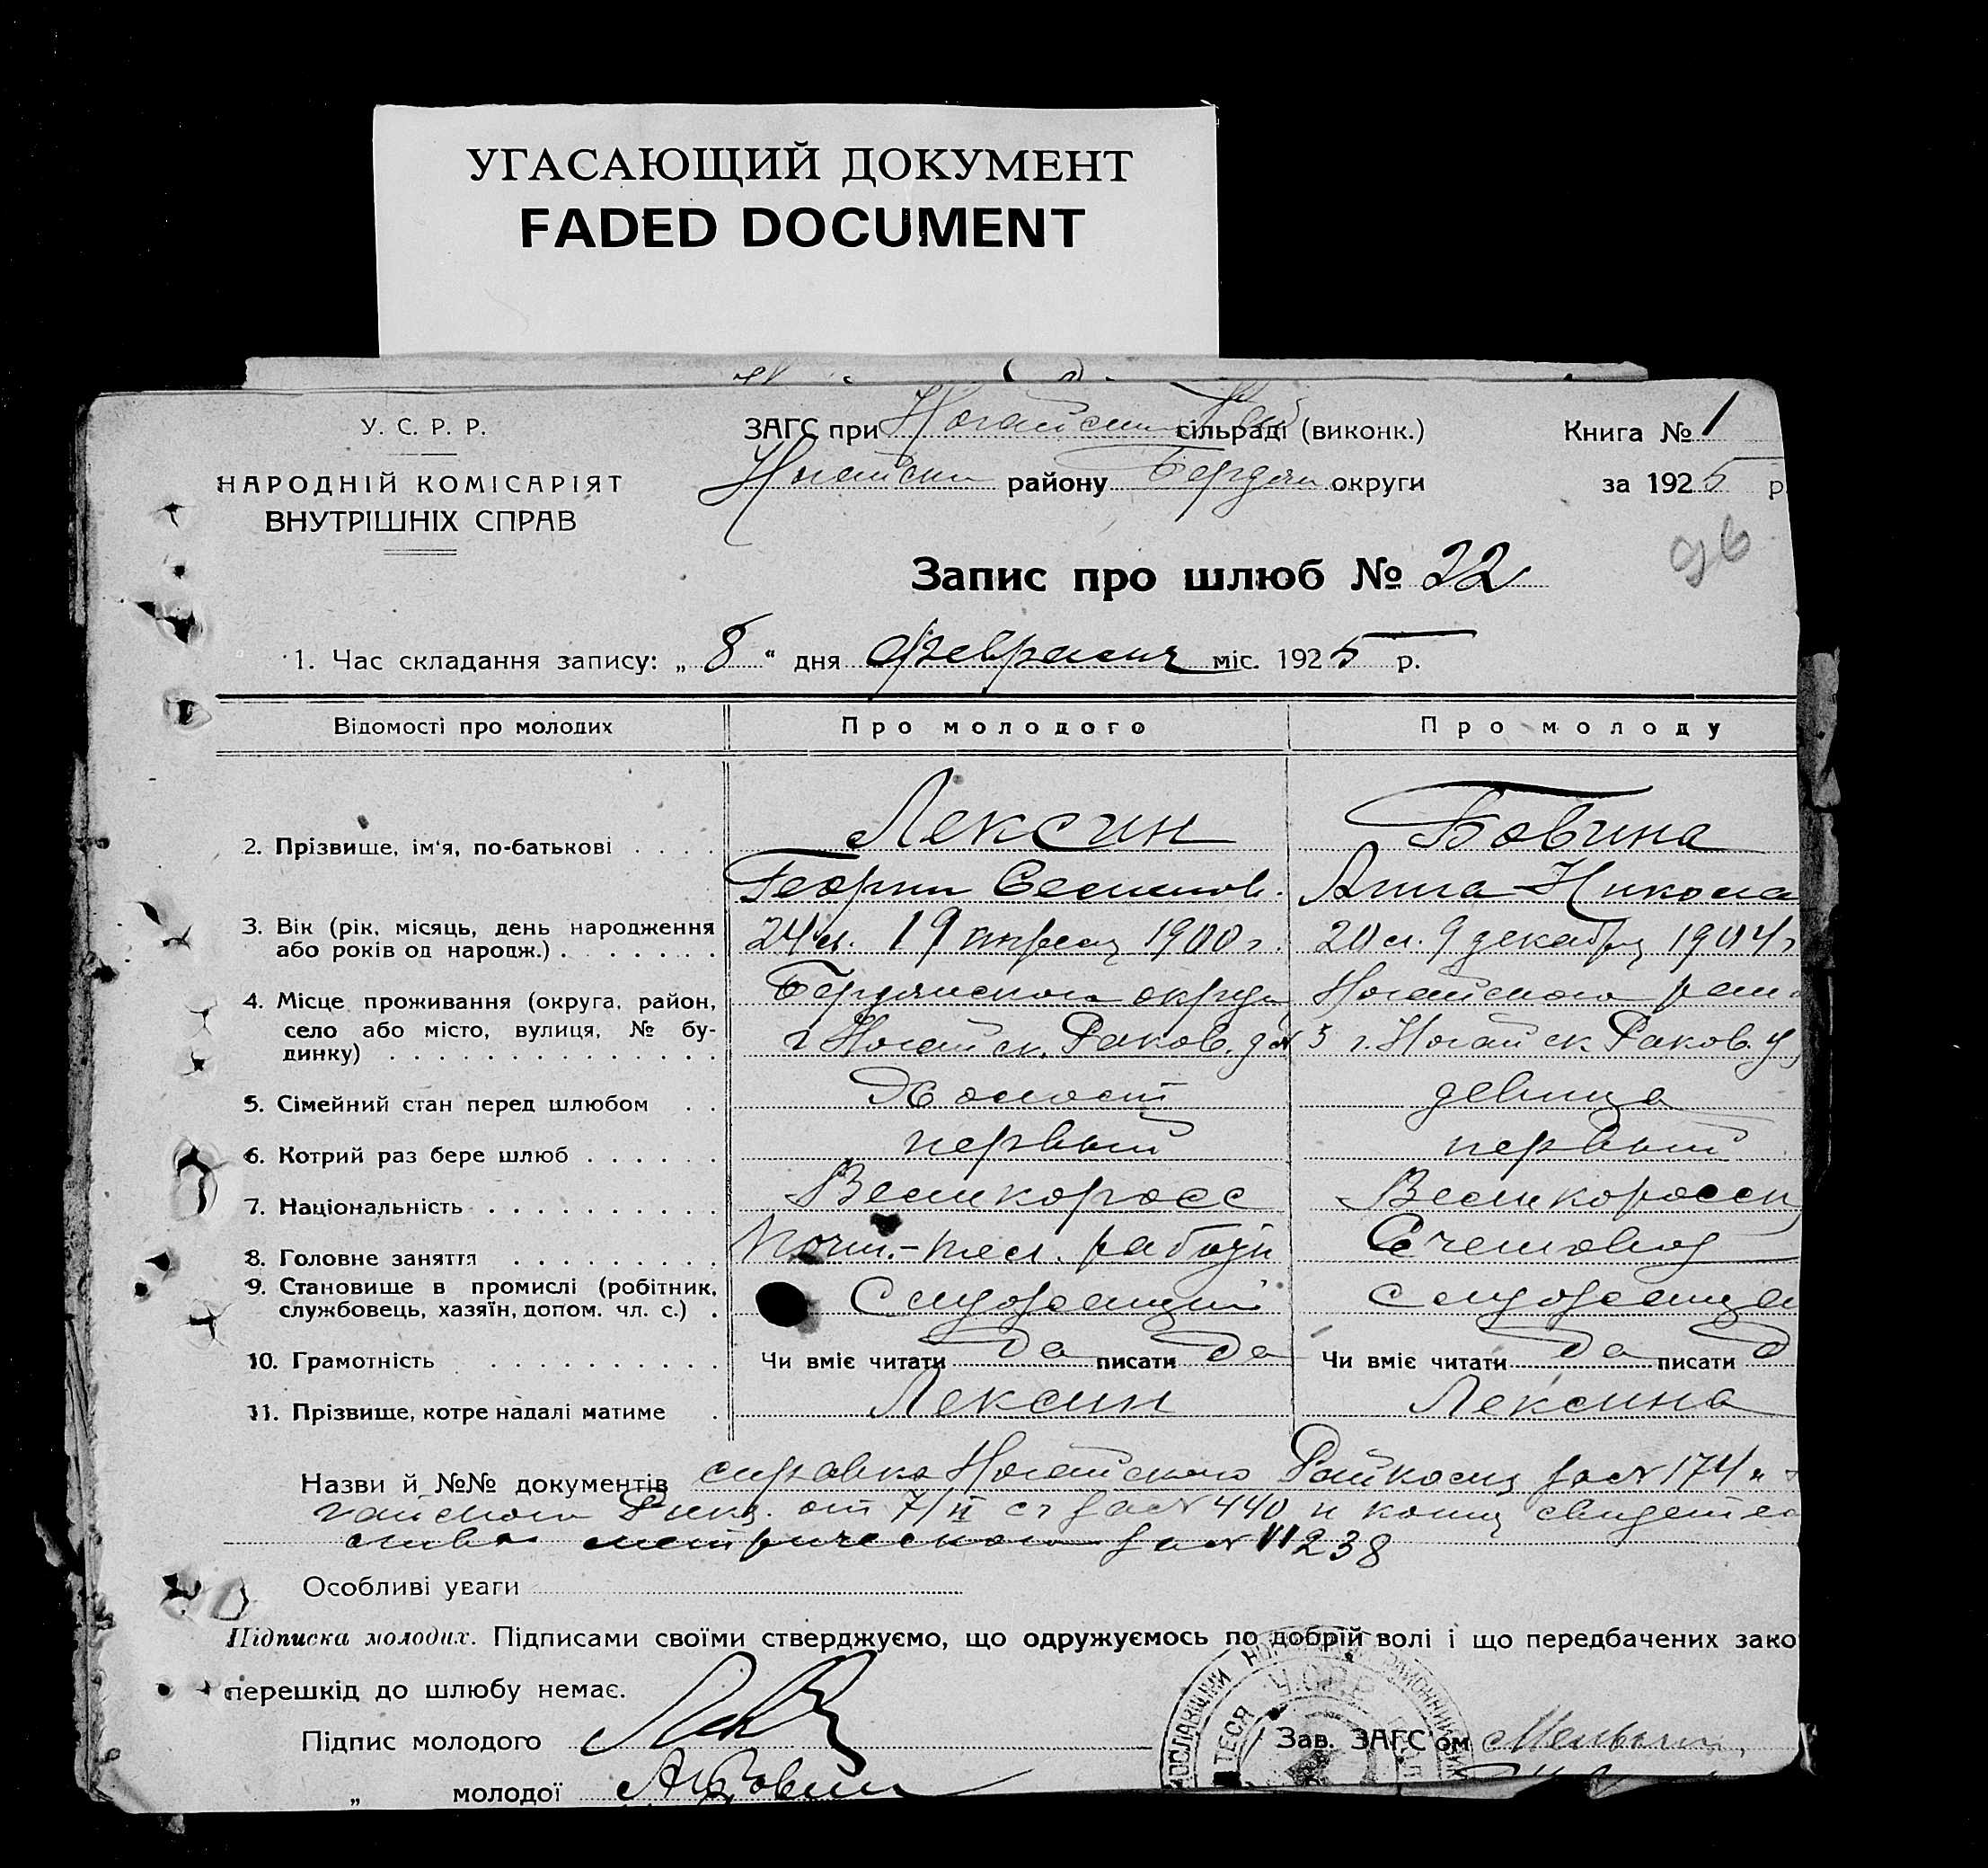 УГАСАЮЩИЙ ДОКУМЕНТ
FADED DOCUMENT
У. С. Р. Р.
НАРОДНІЙ КОМІСАРІЯТ
ВНУТРІШНІХ СПРАВ
ЗАГС при сільраді (виконк.)
району округи
Книга № 1
за 1925 р.
96
Запис про шлюб № 22
1. Час складання запису: „ 8 “ дня февраля міс. 1925 р.
Відомості про молодих Про молодого Про молоду
2. Прізвище, ім‘я, по-батькові . . . . Лексин Бовина
Георгий Семенов. Анна Никола
3. Вік (рік, місяць, день народження 24 л. 19 апреля 1900 г. 20 л. 9 декабря 1904 г
або років од народж.) . . . . . . .
4. Місце проживання (округа, район, Бердянского округа Ногайского рай
село або місто, вулиця, № бу- г Ногайск. Раков. д № 3 г. Ногайск Раков. у
динку) . . . . . . . . . . . . . .
5. Сімейний стан перед шлюбом . . Холост девица
6. Котрий раз бере шлюб . . . . . . первый первый
7. Національність . . . . . . . . . . Великоросс Великоросси
8. Головне заняття . . . . . . . . . Почт.-тел. работн Счетовод
9. Становище в промислі (робітник, Служащий служаща
службовець, хазяїн, допом. чл. с.) .
10. Грамотність . . . . . . . . . . Чи вміє читати да писати да Чи вміє читати да писати д
11. Прізвище, котре надалі матиме . Лексин Лексина
Назви й №№ документів справка Ногайского Райкома за № 174 и
гайского от 7/II с г за № 440 и копия свидетел
ства метрического за № 11238
Особливі уваги
Підписка молодих. Підписами своїми стверджуємо, що одружуємось по добрій волі і що передбачених зако
перешкід до шлюбу немає.
Підпис молодого
У.С.Р.Р.
Зав. ЗАГС‘ом
„ молодої АБовин